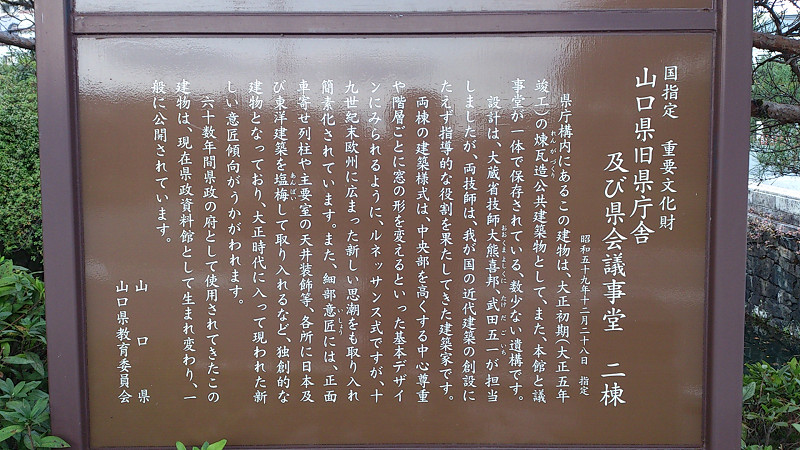 国指定　重要文化財
山口県旧県庁舎
及び県会議事堂　二棟
昭和五十九年十二月二十八日　指定
県庁構内にあるこの建物は、大正初期（大正五年
竣工）の煉瓦造公共建築物として、また、本館と議
れんがづくり
事堂が一体で保存されている、数少ない遺構です。
設計は、大蔵省技師大熊喜邦、武田五一が担当
おおくまよしくに　たけだごいち
しましたが、両技師は、我が国の近代建築の創設に
たえず指導的な役割を果たしてきた建築家です。
両棟の建築様式は、中央部を高くする中心尊重
や階層ごとに窓の形を変えるといった基本デザイ
ンにみられるように、ルネッサンス式ですが、十
九世紀末欧州に広まった新しい思潮をも取り入れ
簡素化されています。また、細部意匠には、正面
いしょう
車寄せ列柱や主要室の天井装飾等、各所に日本及
び東洋建築を塩梅して取り入れるなど、独創的な
あんばい
建物となっており、大正時代に入って現われた新
しい意匠傾向がうかがわれます。
六十数年間県政の府として使用されてきたこの
建物は、現在県政資料館として生まれ変わり、一
般に公開されています。
山口県
山口県教育委員会